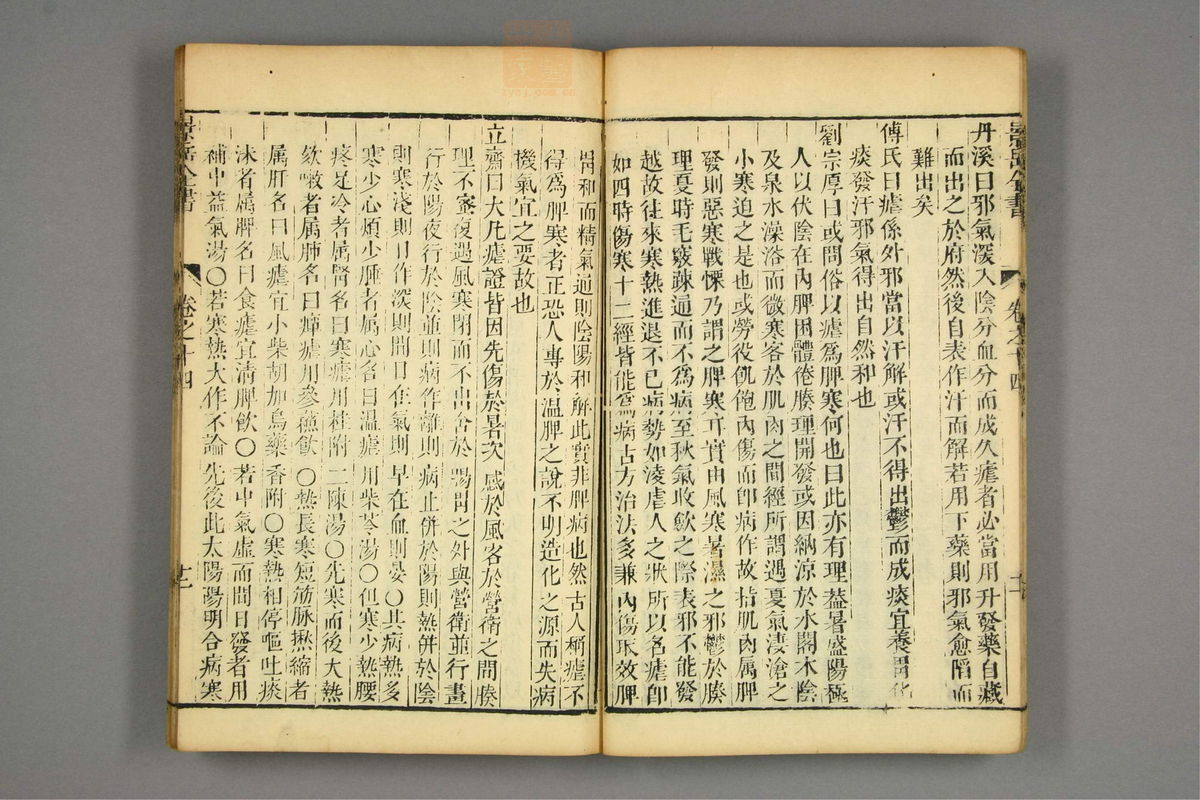 景岳全書
卷之十四
丹溪曰邪氣深入陰分血分而成久瘧者必當用升發藥自臟
而出之於府然後自表作汗而解若用下藥則邪氣愈陷而
難出矣
傅氏曰瘧係外邪當以汗解或汗不得出鬱而成痰宜養胃化
痰發汗邪氣得出自然和也
劉宗厚曰或問俗以瘧為脾寒何也曰此亦有理葢暑盛陽極
人以伏陰在內脾困體倦腠理開發或因納涼於水閣木陰
及泉水澡浴而微寒客於肌肉之間經所謂遇夏氣淒滄之
小寒迫之是也或勞役飢飽內傷而即病作故指肌肉属脾
發則惡寒戰慄乃謂之脾寒耳實由風寒暑濕之邪鬱於腠
理夏時毛竅疎通而不為病至秋氣收斂之際表邪不能發
越故往來寒熱進退不已病勢如淩虐人之狀所以名瘧即
如四時傷寒十二經皆能為病古方治法多兼內傷取效脾
胃和而精氣通則陰陽和解此實非脾病也然古人稱瘧不
得為脾寒者正恐人專於温脾之說不明造化之源而失病
機氣宜之要故也
立齋曰大凡瘧證皆因先傷於暑次感於風客於營衛之間腠
理不密復遇風寒閉而不出舍於腸胃之外與營衛並行晝
行於陽夜行於陰並則病作離則病止併於陽則熱併於陰
則寒淺則日作深則間日在氣則早在血則晏○其病熱多
寒少心煩少睡者属心名曰温瘧用柴苓湯○但寒少熱腰
疼足冷者属腎名曰寒瘧用桂附二陳湯○先寒而後大熱
欬嗽者属肺名曰癉瘧用參蘇飲○熱長寒短筋脉揪縮者
属肝名曰風瘧宜小柴胡加烏藥香附○寒熱相停嘔吐痰
沫者属脾名曰食瘧宜清脾飲○若中氣虛而間日發者用
補中益氣湯○若寒熱大作不論先後此太陽陽明合病寒
景岳全書
卷之十四